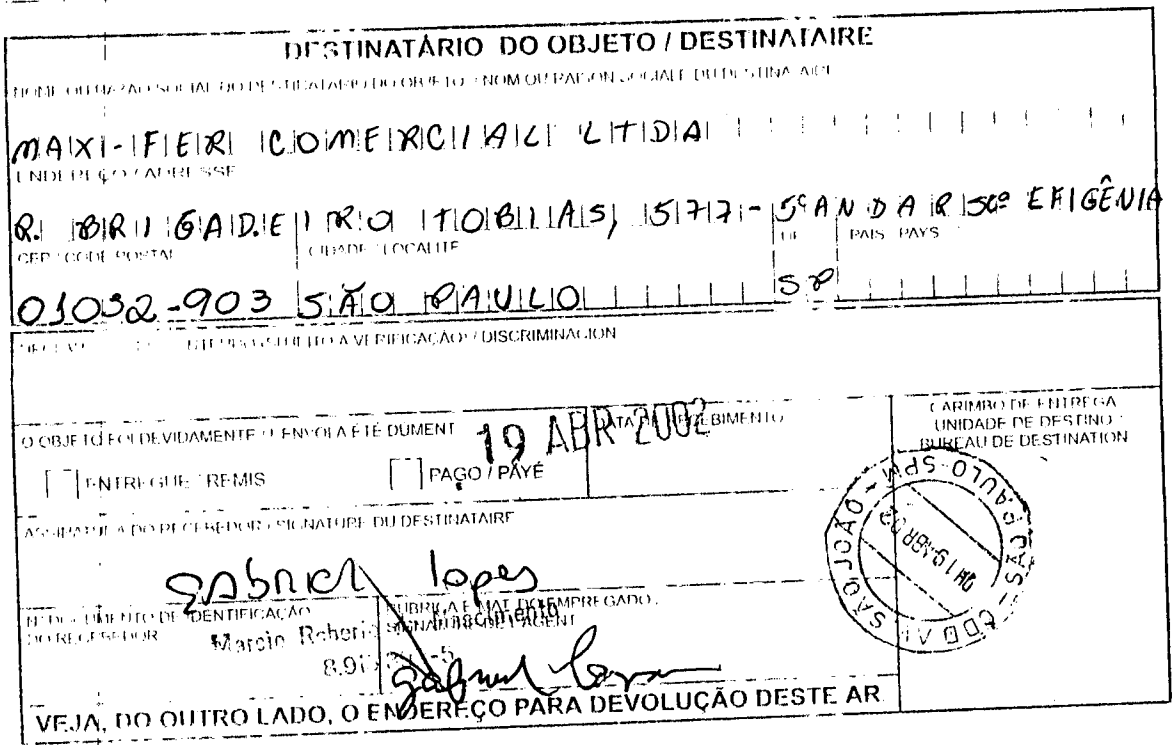 DESTINATÁRIO DO OBJETO / DESTINATAIRE
NOME OU RAZÃO SOCIAL DO DESTINATÁRIO DO OBJETO / NOM OU RAISON SOCIALE DU DESTINATAIRE
MAXI-FER COMERCIAL LTDA
ENDEREÇO / ADRESSE
R. BRIGADEIRO TOBIAS, 577 - 5º ANDAR Stª EFIGÊNIA
CEP / CODE POSTAL CIDADE / LOCALITÉ UF PAÍS / PAYS
01032-903 SÃO PAULO SP
SUJEITO A VERIFICAÇÃO / DISCRIMINACION
O OBJETO FOI DEVIDAMENTE / L'ENVOI A ÉTÉ DUMENT
19 ABR 2002
DATA DE RECEBIMENTO
CARIMBO DE ENTREGA
UNIDADE DE DESTINO
BUREAU DE DESTINATION
ENTREGUE / REMIS PAGO / PAYÉ
SÃO JOÃO - SPM
19 ABR 02
ASSINATURA DO RECEBEDOR / SIGNATURE DU DESTINATAIRE
gabriel lopes
Nº DOCUMENTO DE IDENTIFICAÇÃO DO RECEBEDOR
RUBRICA E MAT. DO EMPREGADO / SIGNATURE DE L'AGENT
Nascimento
gabriel
VEJA, DO OUTRO LADO, O ENDEREÇO PARA DEVOLUÇÃO DESTE AR